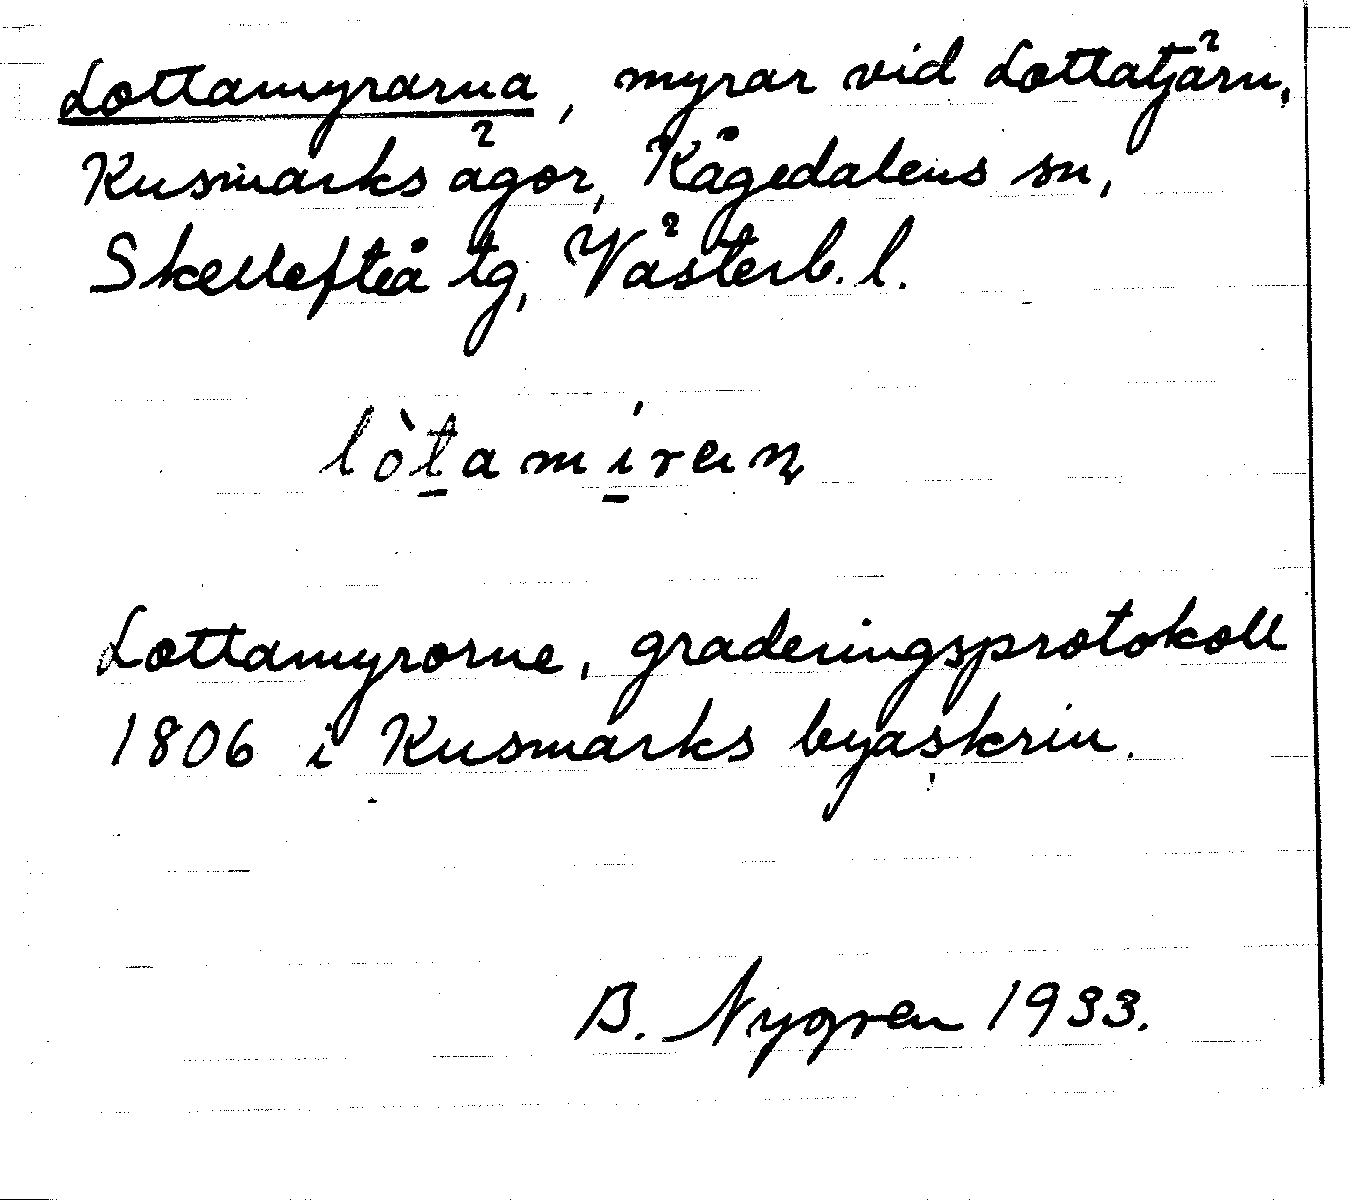 Lottamyrarna, myrar vid Lottatjärn,
Kusmarks ägor, Kågedalens sn,
Skellefteå tg, Västerb. l.
lòtamíran
Lottamyrorne, graderingsprotokoll
1806 i Kusmarks byaskrin.
B. Nygren 1933.